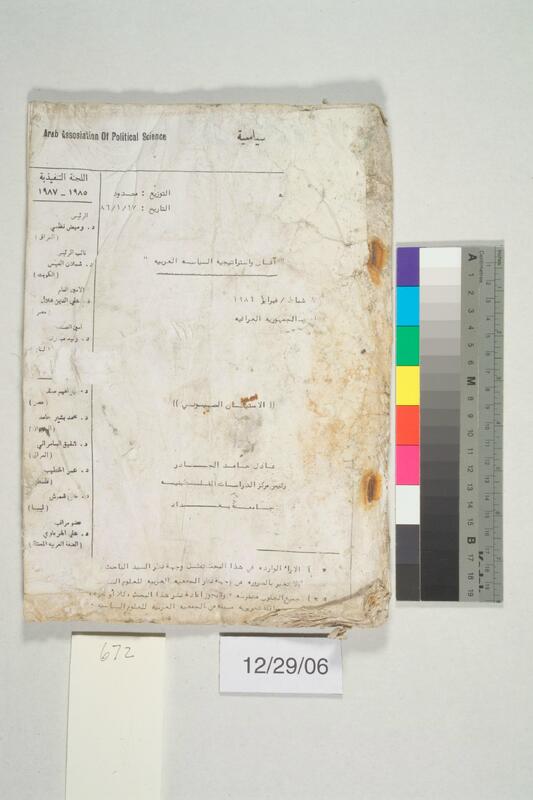 Arab Association Of Political Science
سياسية
اللجنة التنفيذية
١٩٨٥ - ١٩٨٧
الرئيس
د. وميض نظمي
(العراق)
نائب الرئيس
د. شملان العيس
(الكويت)
الأمين العام
د. علي الدين هلال
مصر
أمين الصندوق
د.
د. ابراهيم صقر
(مصر)
د. محمد بشير حامد
د. شفيق السامرائي
(العراق)
د. عمر الخطيب
فلسطين
د.
(ليبيا)
عضو مراقب
د. علي الجرباوي
(الضفة الغربية المحتلة)
التوزيع : محدود
التاريخ : ٨٦/١/١٧
" آفاق واستراتيجية السياسة العربية "
شباط / فبراير ١٩٨٦
الجمهورية العراقية
(( الاستيطان الصهيوني ))
عادل حامد الجادر
رئيس مركز الدراسات الفلسطينية
جامعة بغداد
* ) الآراء الواردة في هذا البحث تمثل وجهة نظر السيد الباحث
ولا تعبر بالضرورة عن وجهة نظر الجمعية العربية للعلوم
* * ) جميع الحقوق محفوظة . ولايجوز اعادة نشر هذا البحث كلا أو
موافقة تحريرية مسبقة من الجمعية العربية للعلوم السياسية .
672
12/29/06
A
1
2
3
4
5
6
M
8
9
10
11
12
13
14
15
B
17
18
19
Centimetres
Inches